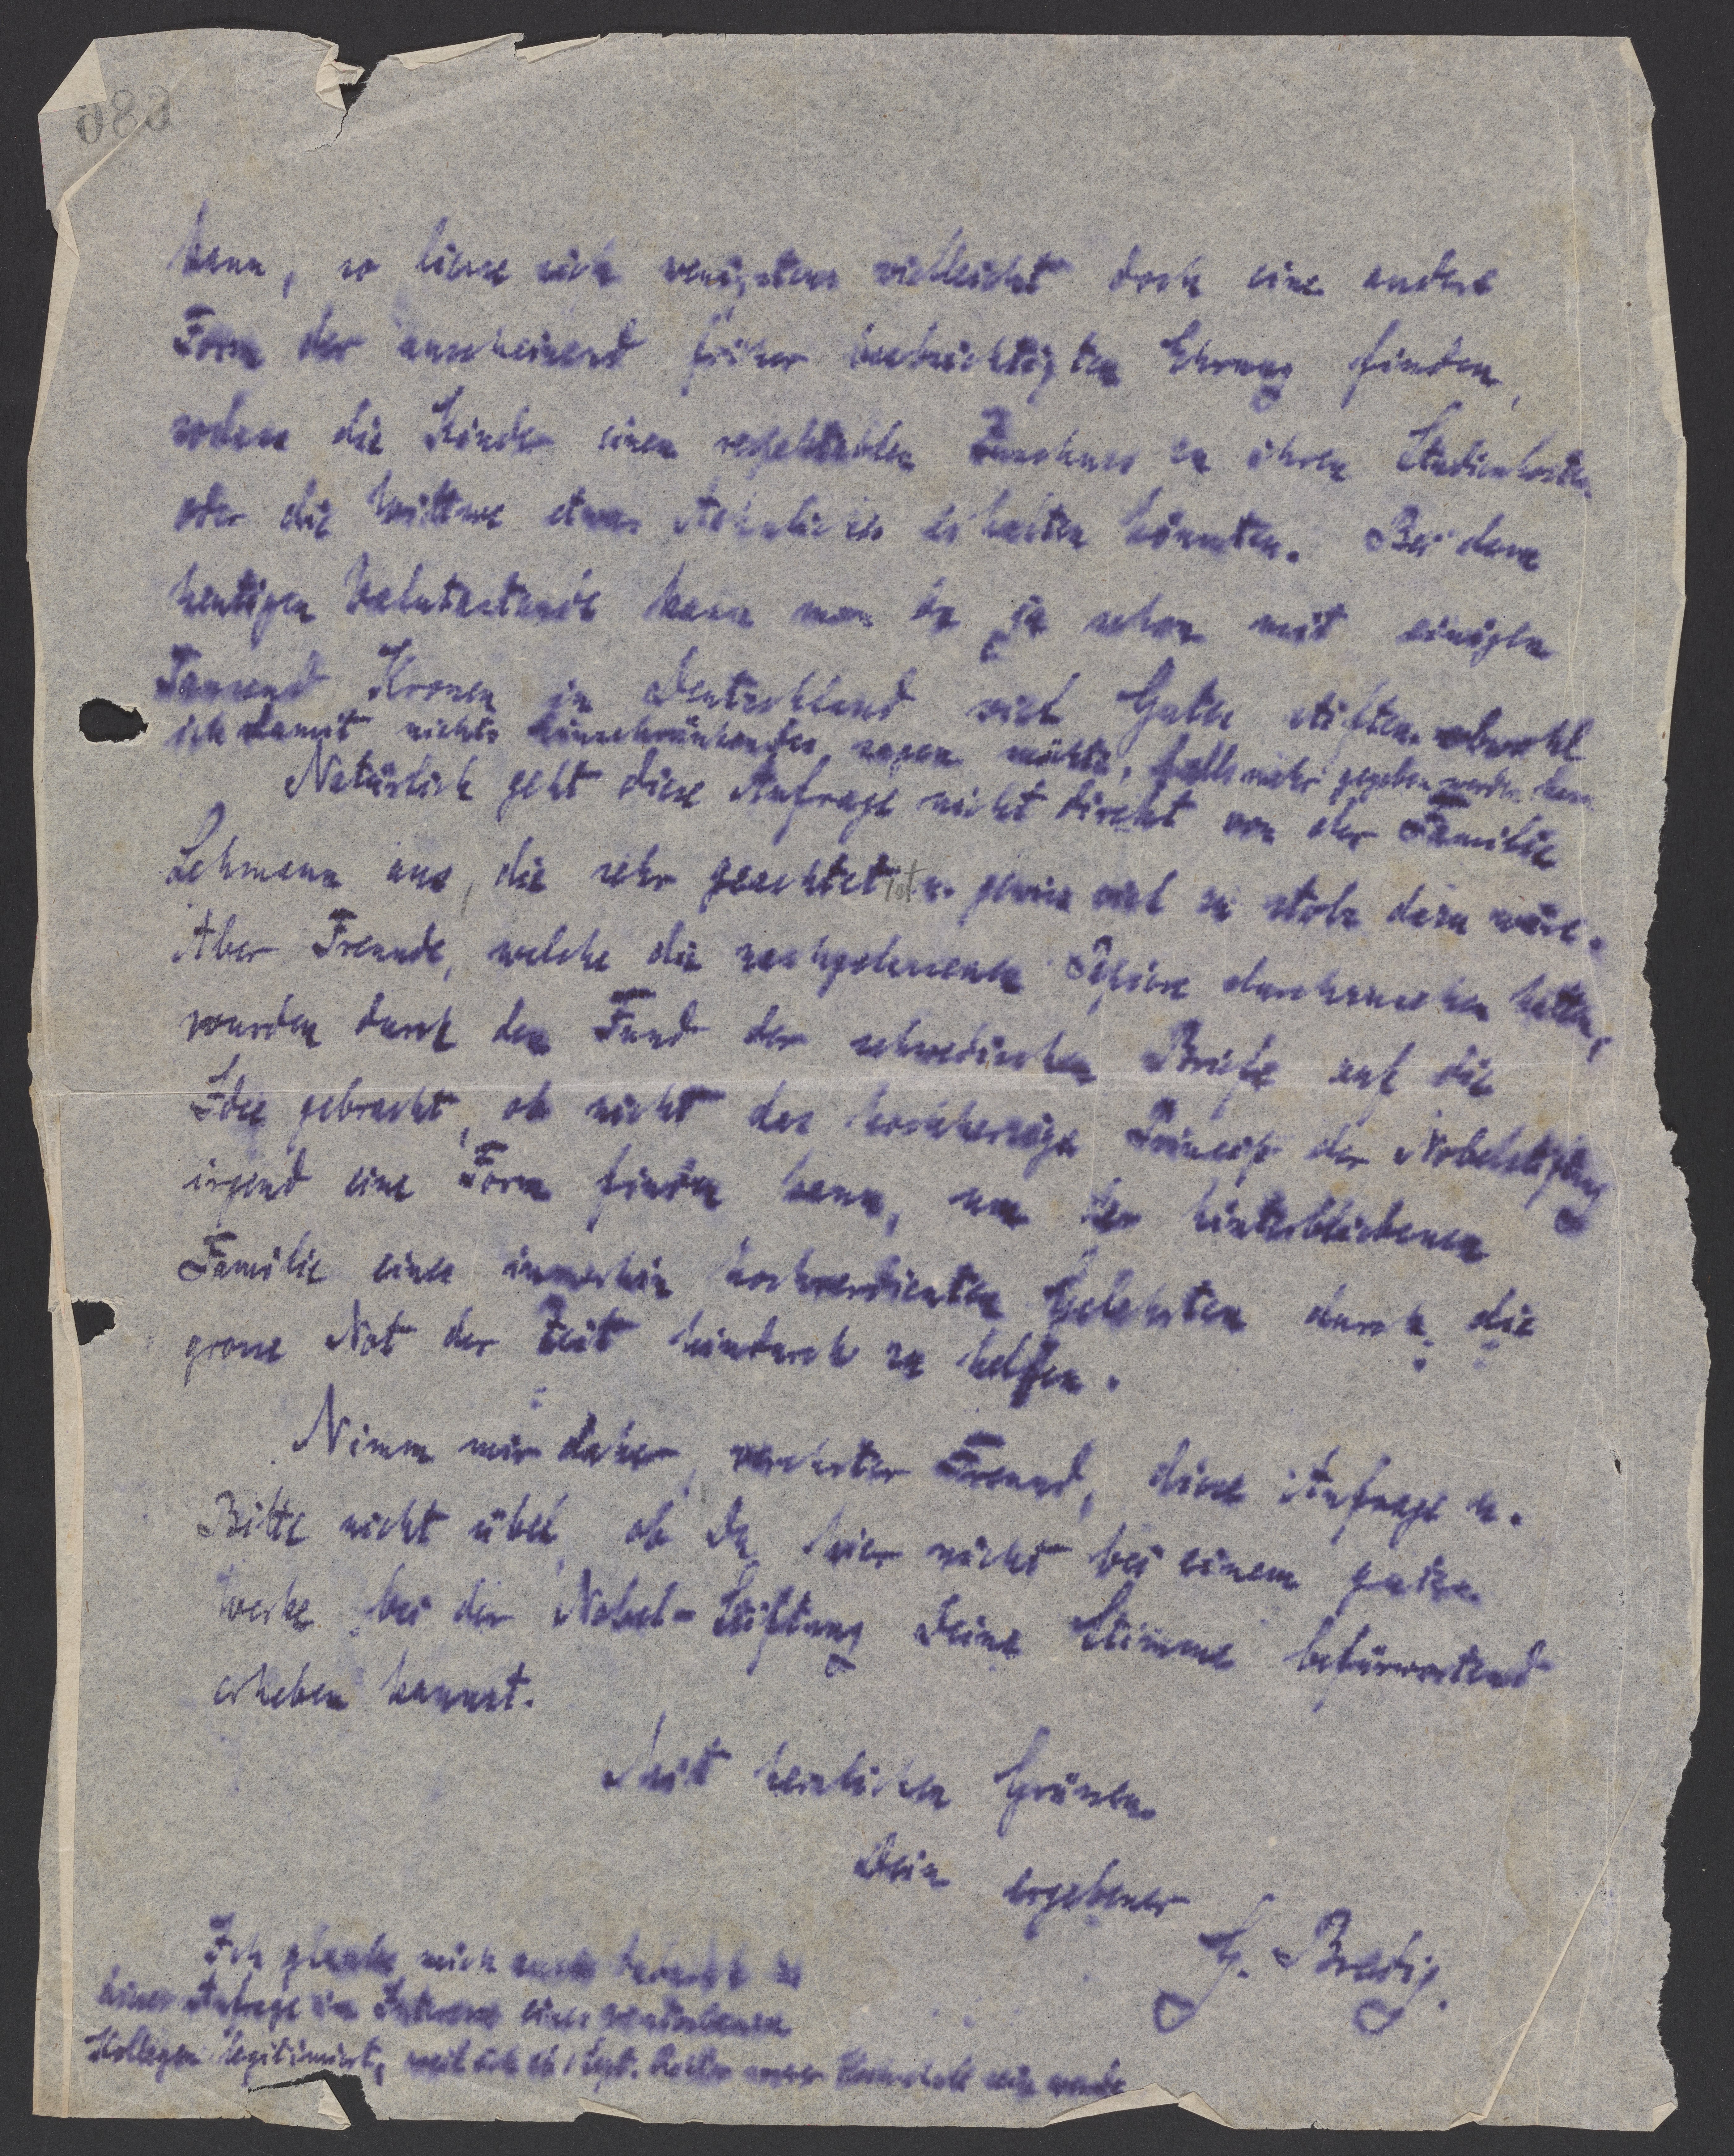 680
kann, so liesse sich wenigstens vielleicht doch eine andere
Form der anscheinend früher beabsichtigten Ehrung finden,
sodass die Kinder einen Zuschuss zu ihren Studienkosten
oder die Wittwe etwas Aehnliches erhalten könnten. Bei dem
heutigen Valutastande kann man da ja schon mit einigen
Tausend Kronen in Deutschland viel Gutes stiften, obwohl
ich damit nichts Einschränkendes sagen möchte, falls mehr gegeben werden kann.
Natürlich geht diese Anfrage nicht direkt von der Familie
Lehmann aus, die sehr geachtet ist u. gewiss viel zu stolz dazu wäre.
Aber Freunde, welche die nachgelassenen Papiere durchzusehen hatten,
wurden durch den Fund der schwedischen Briefe auf die
Idee gebracht, ob nicht das hochherzige Princip der Nobelstiftung
irgend eine Form finden kann, um der hinterbliebenen
Familie eines immerhin hochverdienten Gelehrten durch die
grosse Not der Zeit hindurch zu helfen.
Nimm mir daher, verehrter Freund, diese Anfrage u.
Bitte nicht übel, ob Du hier nicht bei einem guten
Werke bei der Nobel-Stiftung Deine Stimme befürwortend
erheben kannst.
Mit herzlichen Grüssen
Dein ergebener
G. Bredig.
Ich glaube mich auch zu
dieser Anfrage im Interesse eines verstorbenen
Kollegen legitimiert, weil ich ab 1 Sept. Rektor unserer Hochschule sein werde